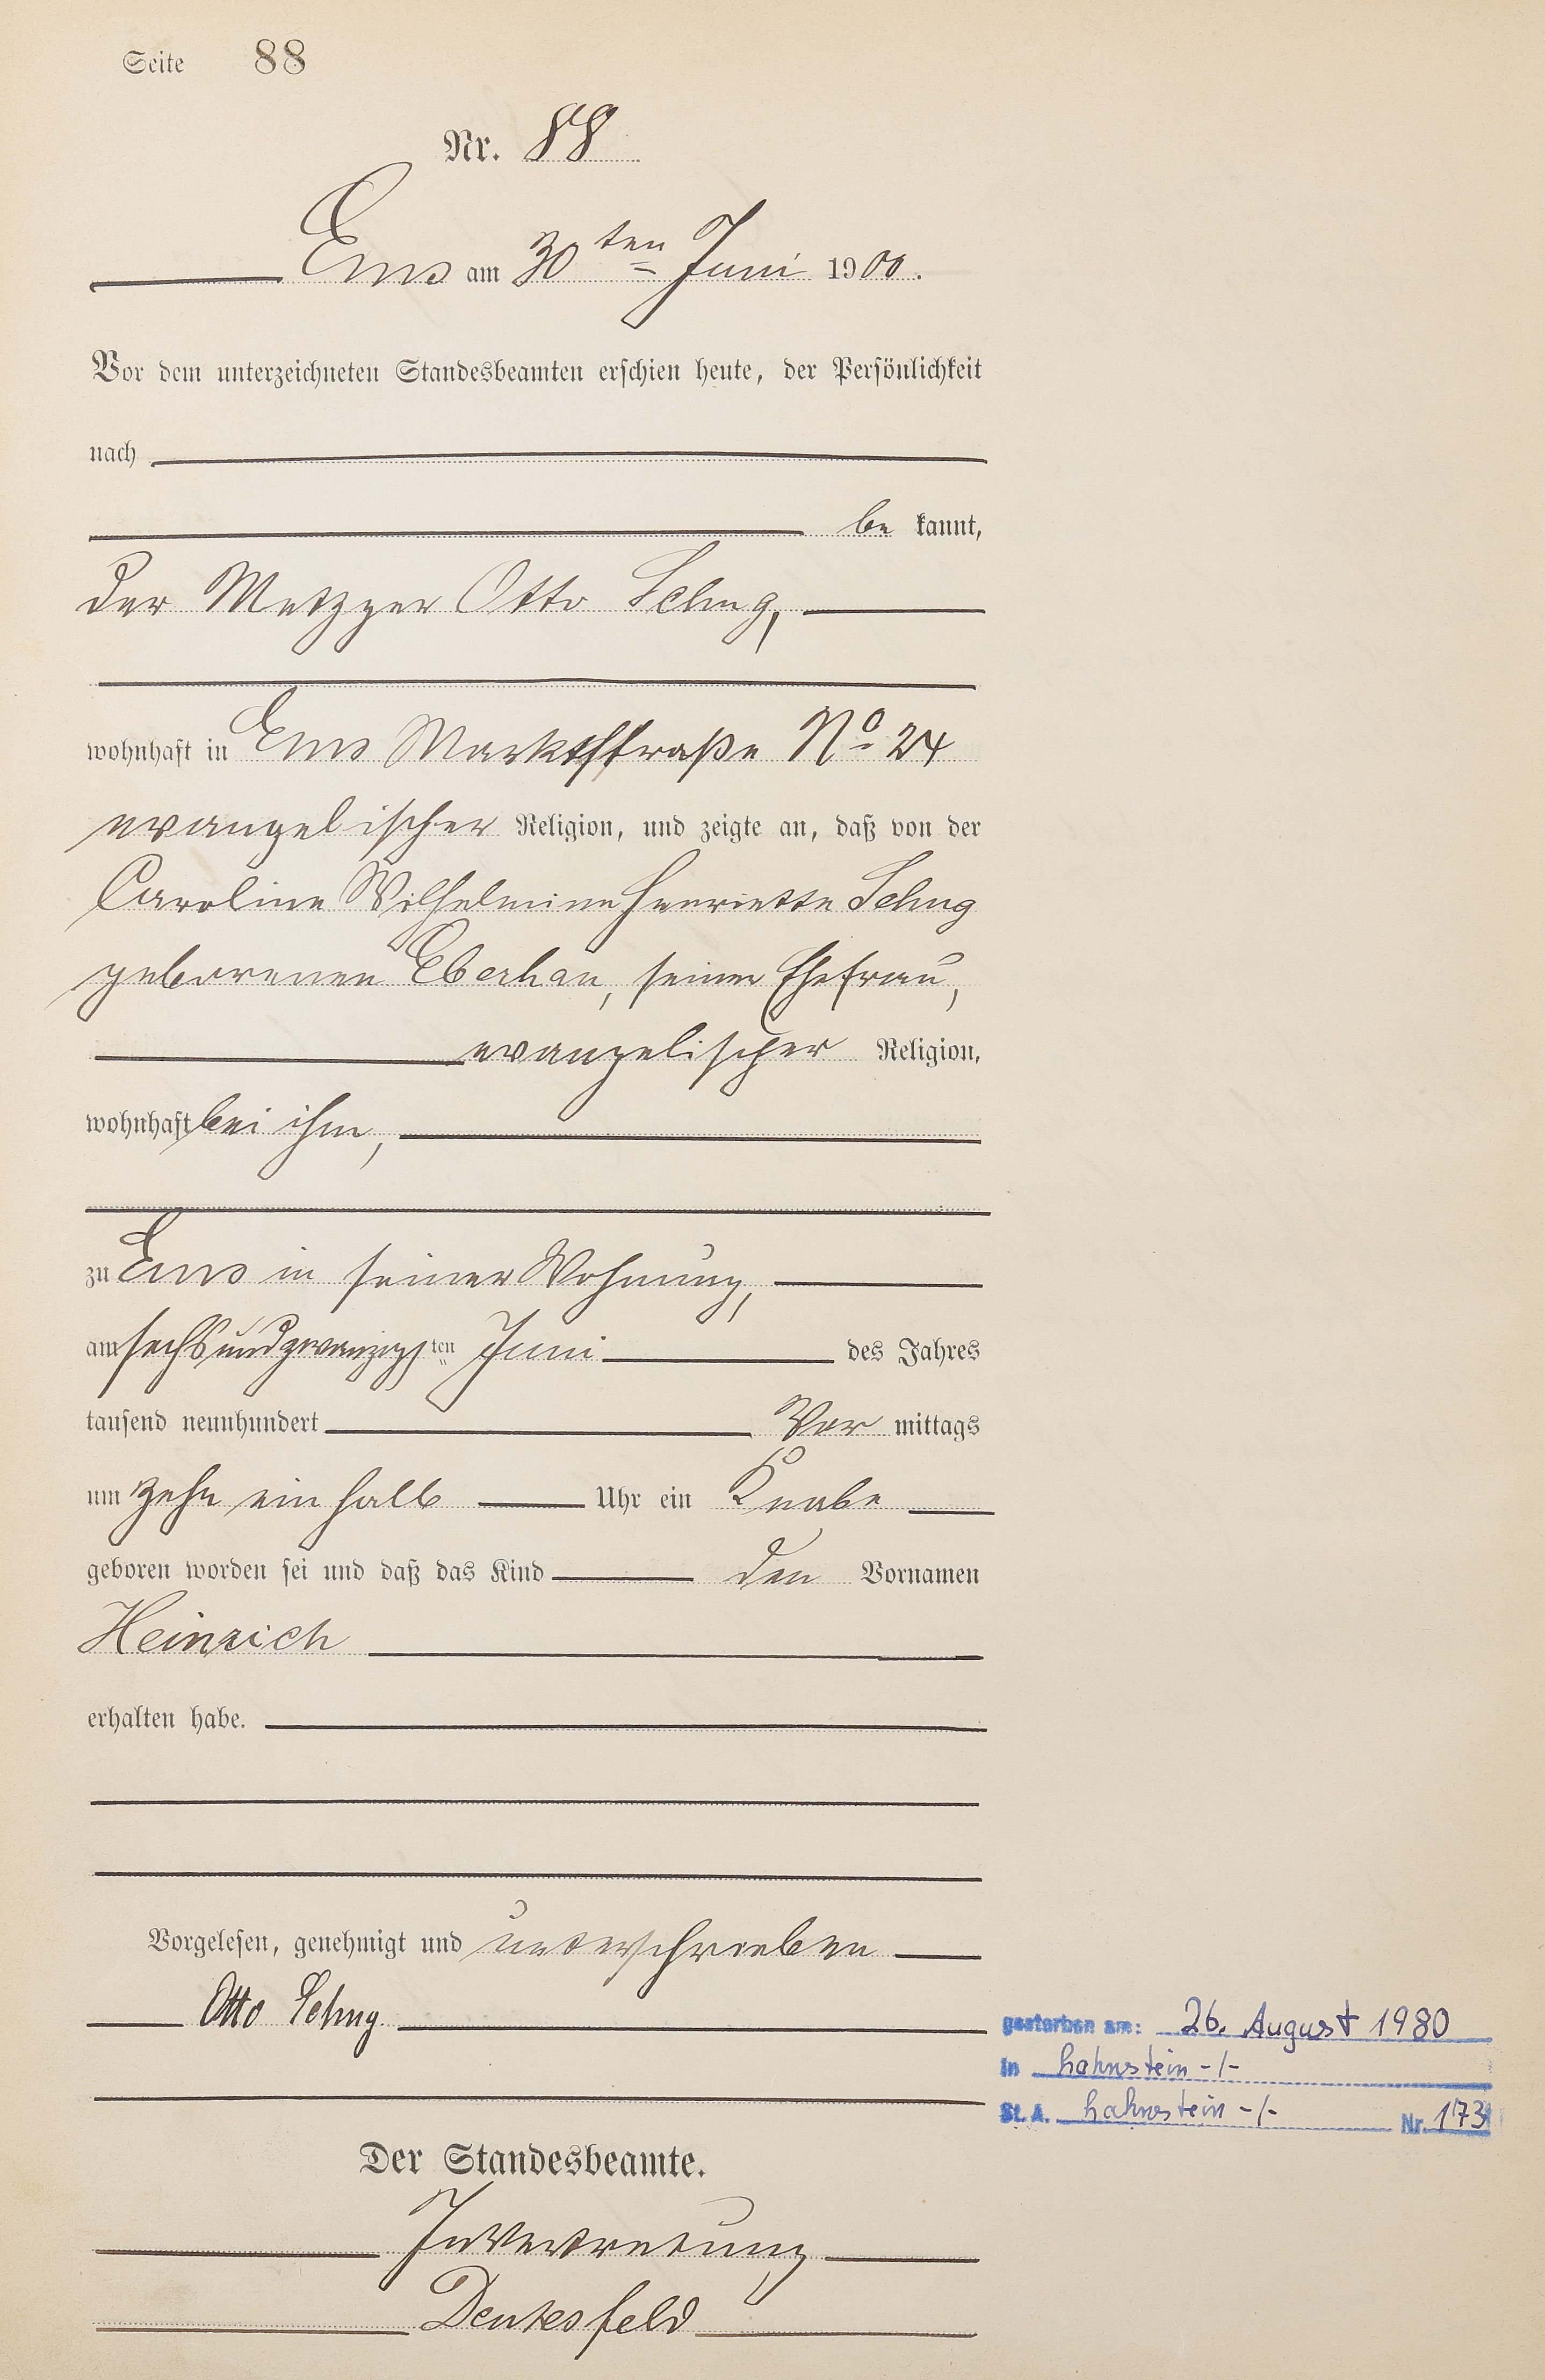 Seite 88
Nr. 88
Ems am 30ten Juni 1900.
Vor dem unterzeichneten Standesbeamten erschien heute, der Persönlichkeit
nach
be kannt,
der Metzger Otto Schug,
wohnhaft in Ems Marktstraße No 24
evangelischer Religion, und zeigte an, daß von der
Caroline Wilhelmine Henriette Schug
geborenen Eberhan, seiner Ehefrau,
evangelischer Religion,
wohnhaft bei ihm,
zu Ems in seiner Wohnung,
am sechsundzwanzigsten Juni des Jahres
tausend neunhundert Vor mittags
um zehn ein halb Uhr ein Knabe
geboren worden sei und daß das Kind den Vornamen
Heinrich
erhalten habe.
Vorgelesen, genehmigt und unterschrieben
Otto Schug
gestorben am: 26. August 1980
in Lahnstein -/-
St. A. Lahnstein -/- Nr. 173
Der Standesbeamte.
In Vertretung
Deutesfeld